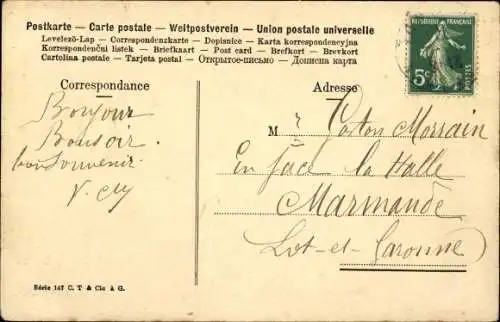 Postkarte — Carte postale — Weltpostverein — Union postale universelle
Levelező-Lap — Correspondenzkarte — Dopisnice — Karta korrespondencyjna
Korrespondenční listek — Briefkaart — Post card — Brefkort — Brevkort
Cartolina postale — Tarjeta postal — Открытое-письмо — Дописна карта
RÉPUBLIQUE FRANÇAISE
5c
POSTES
Correspondance
Adresse
Bonjour
Bonsoir.
bon Souvenir.
V.
Mr Gaston Morrain
En face la Halle
Marmande
Lot-et-Garonne)
Série 147 C. T & Cie à G.